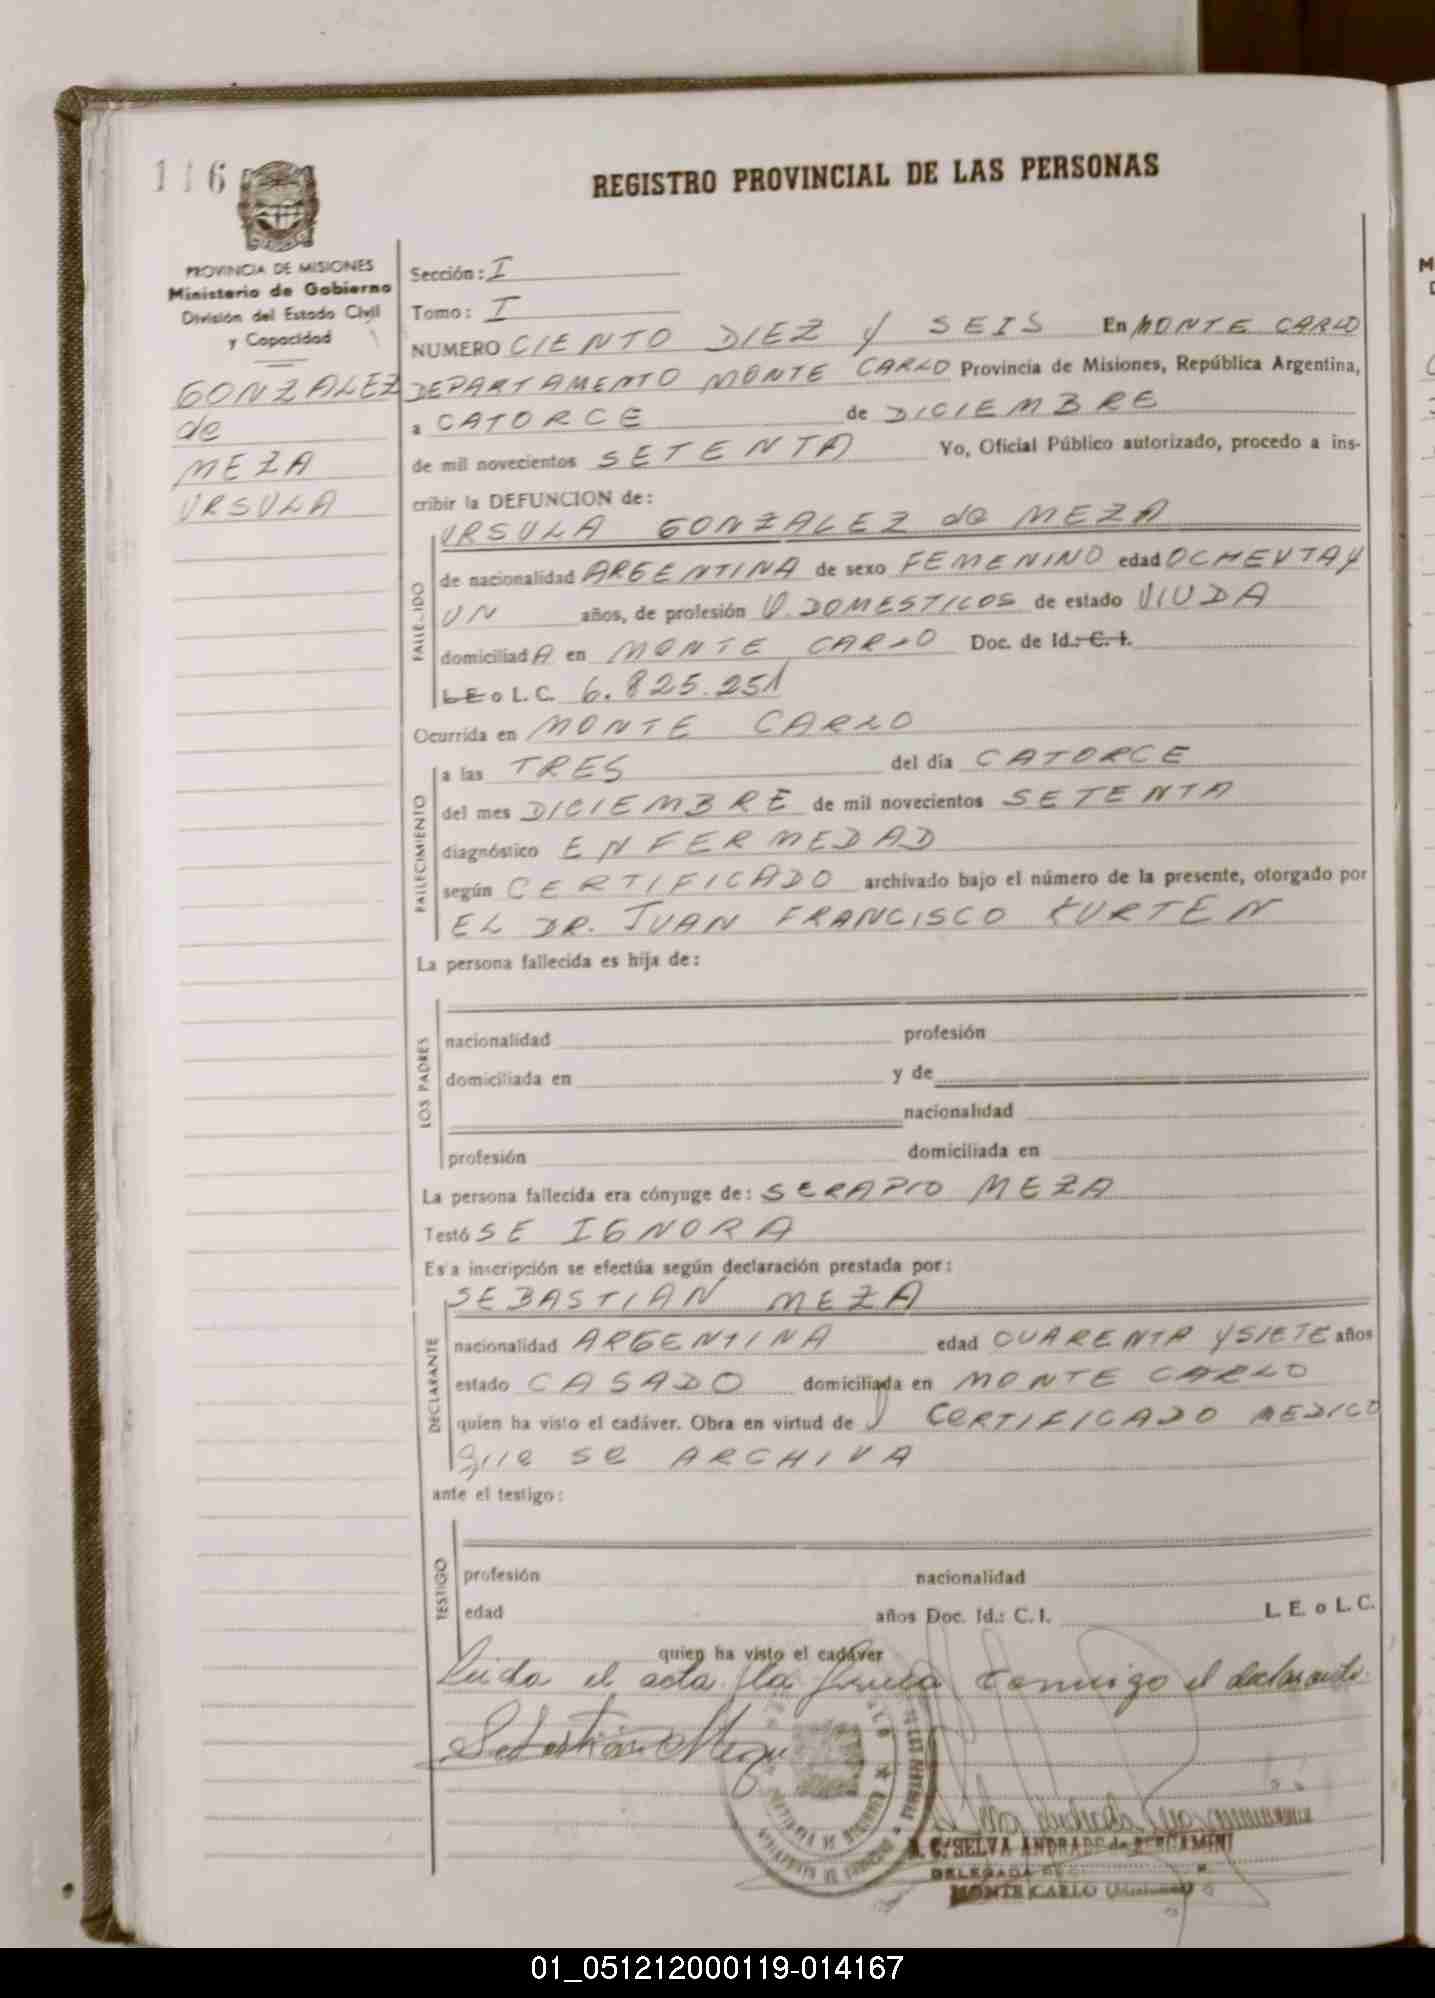 116
REGISTRO PROVINCIAL DE LAS PERSONAS
PROVINCIA DE MISIONES
Ministerio de Gobierno
División del Estado Civil
y Capacidad
GONZALEZ
de
MEZA
URSULA
Sección: I
Tomo: I
NUMERO CIENTO DIEZ y SEIS En MONTE CARLO
DEPARTAMENTO MONTE CARLO Provincia de Misiones, República Argentina,
a CATORCE de DICIEMBRE
de mil novecientos SETENTA Yo, Oficial Público autorizado, procedo a ins-
cribir la DEFUNCION de:
FALLECIDO
URSULA GONZALEZ de MEZA
de nacionalidad ARGENTINA de sexo FEMENINO edad OCHENTA y
UN años, de profesión Q. DOMESTICOS de estado VIUDA
domiciliadA en MONTE CARLO Doc. de Id.: C. I.
L E o L. C. 6.825.251
Ocurrida en MONTE CARLO
FALLECIMIENTO
a las TRES del día CATORCE
del mes DICIEMBRE de mil novecientos SETENTA
diagnóstico ENFERMEDAD
según CERTIFICADO archivado bajo el número de la presente, otorgado por
EL DR. JUAN FRANCISCO KURTEN
La persona fallecida es hija de:
LOS PADRES
nacionalidad profesión
domiciliada en y de
nacionalidad
profesión domiciliada en
La persona fallecida era cónyuge de: SERAPIO MEZA
Testó SE IGNORA
Esta inscripción se efectúa según declaración prestada por:
DECLARANTE
SEBASTIAN MEZA
nacionalidad ARGENTINA edad CUARENTA y SIETE años
estado CASADO domiciliada en MONTE CARLO
quien ha visto el cadáver. Obra en virtud de CERTIFICADO MEDICO
que se ARCHIVA
ante el testigo:
TESTIGO
profesión nacionalidad
edad años Doc. Id.: C. I. L. E. o L. C.
quien ha visto el cadáver
Leida el acta la firma conmigo el declarante.
Sebastián Meza
SELVA ANDRADE de BERGAMINI
DELEGADA
MONTE CARLO (Misiones)
01_051212000119-014167